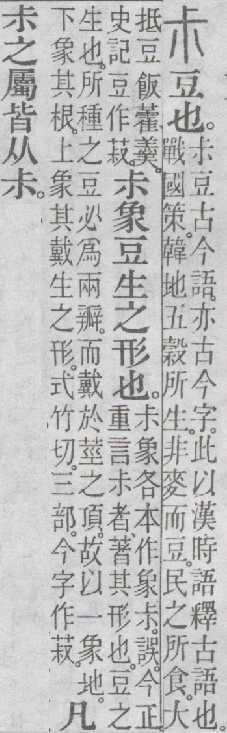 尗豆也。尗豆古今語。亦古今字。此以漢時語釋古語也。戰國策。韓地五穀所生。非麥而豆。民之所食。大
抵豆飯藿羹。史記豆作菽。尗象豆生之形也。尗象各本作象尗。誤。今正重言尗者。著其形也。豆之
生也。所種之豆必爲兩瓣。而戴於莖之頂。故以一象地。下象其根。上象其戴生之形。式竹切。三部。今字作菽。凡
尗之屬皆从尗。